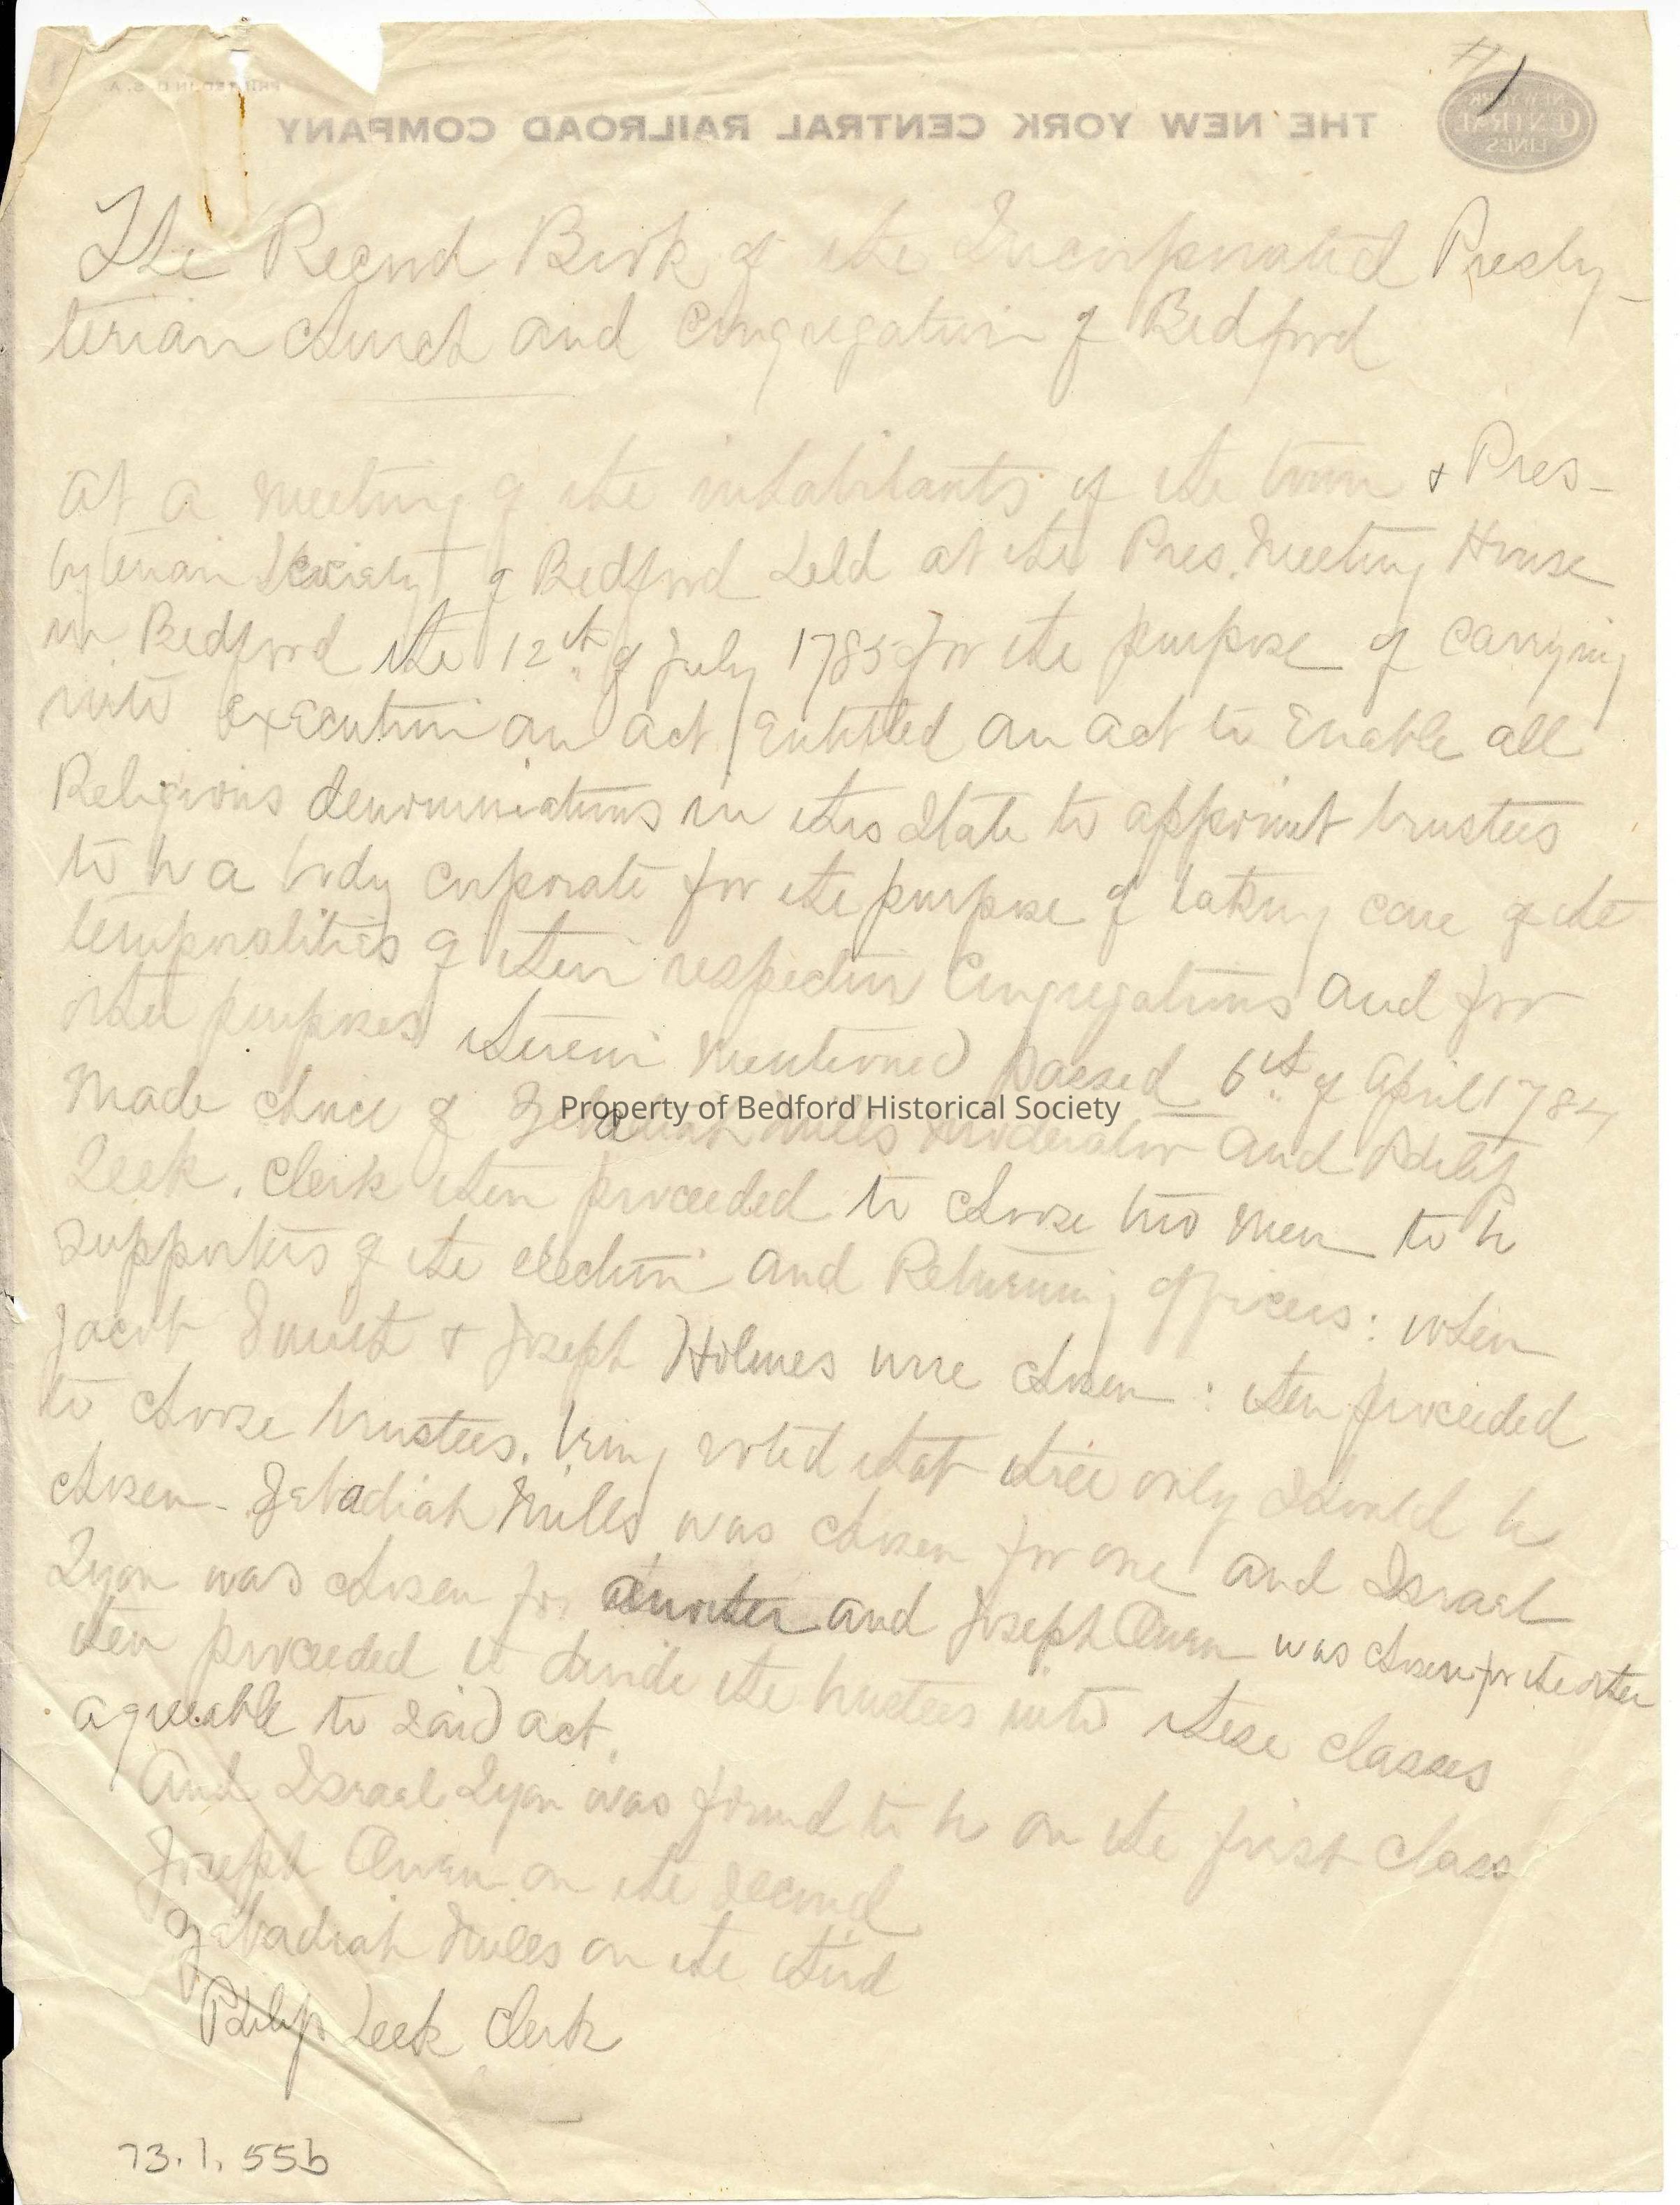 #1
PRINTED IN U. S. A.
THE NEW YORK CENTRAL RAILROAD COMPANY
NEW YORK CENTRAL LINES
The Record Book of the Incorporated Presby-
terian church and Congregation of Bedford
At a meeting of the inhabitants of the town & Pres-
byterian Society of Bedford held at the Pres. Meeting House
in Bedford the 12th of July 1785 for the purpose of carrying
into execution an act Entitled an act to Enable all
Religious denominations in this State to appoint trustees
to be a body corporate for the purpose of taking care of the
temporalities of their respective Congregations and for
other purposes therein mentioned passed 6th of April 1784
Made choice of Zebadiah Mills Moderator and Philip
Leek, Clerk then proceeded to choose two men to be
supporters of the election and Returning officers: when
Jacob Smith & Joseph Holmes were chosen: then proceeded
to choose trustees. being voted that three only should be
chosen - Zebadiah Mills was chosen for one and Israel
Lyon was chosen for another and Joseph Owen was chosen for the other
then proceeded to divide the trustees into these classes
agreeable to said act.
And Israel Lyon was found to be on the first class
Joseph Owen on the second
Zebadiah Mills on the third
Philip Leek Clerk
73.1.55b
Property of Bedford Historical Society